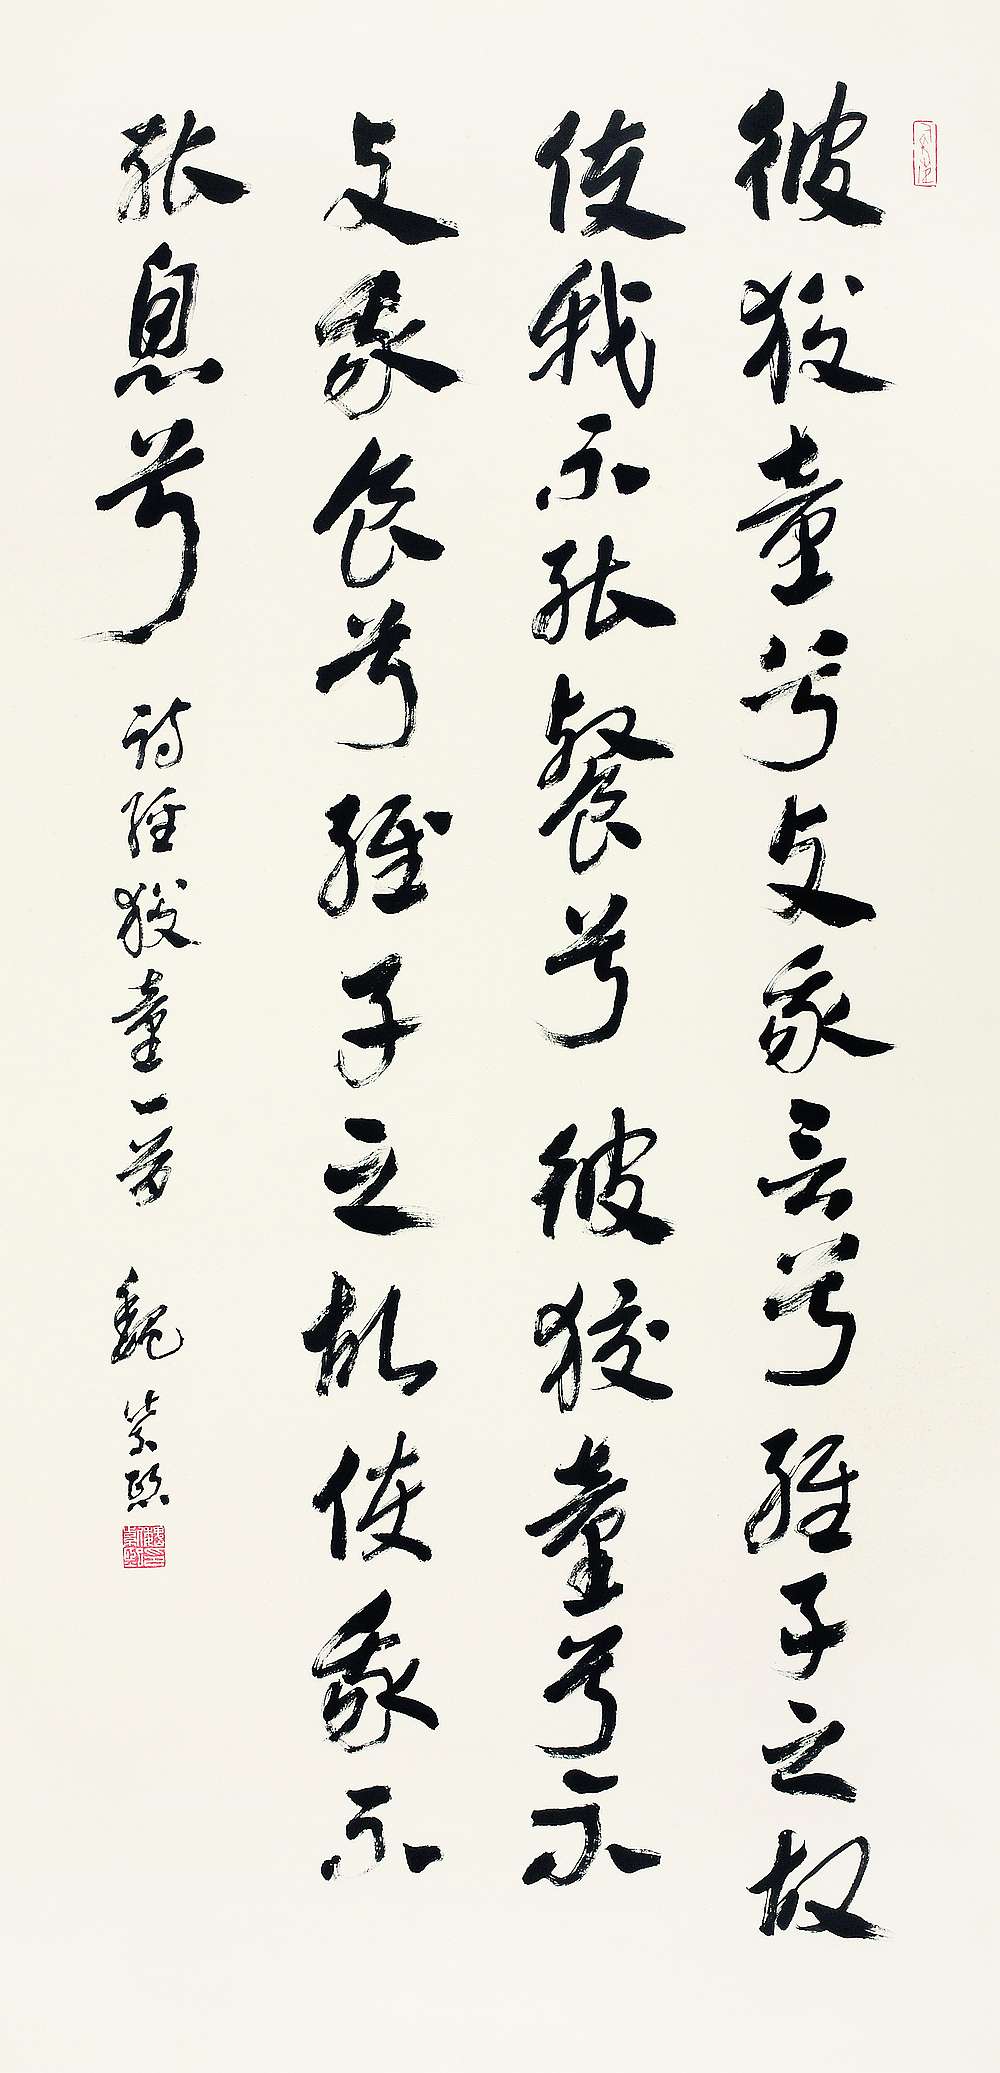 彼狡童兮与我言兮維子之故
使我不能餐兮 彼狡童兮不
与我食兮維子之故使我不
能息兮 詩經狡童一首 魏紫熙